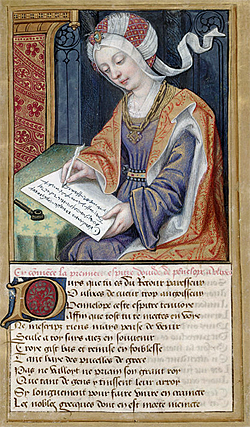 Cy comece la premiere epitre ovide de penelope a ulixes
Puis que tu es du retour paresseux
O ulixes de cueur trop angoisseux
Penelope ceste epistre tenvoye
Affin que tost tu te mectes en voye
Ne mescrips riens mais pense de venir
Seule a toy suis ayes en souvenir
Troye gist bas et remise en foiblesse
Tant haye des pucelles de grece
Pas ne valloit ne priam son grant roy
Que tant de gens y tinssent leur arroy
Sy longuement pour faire vivre en craincte
Les nobles grecques dont en est morte maincte